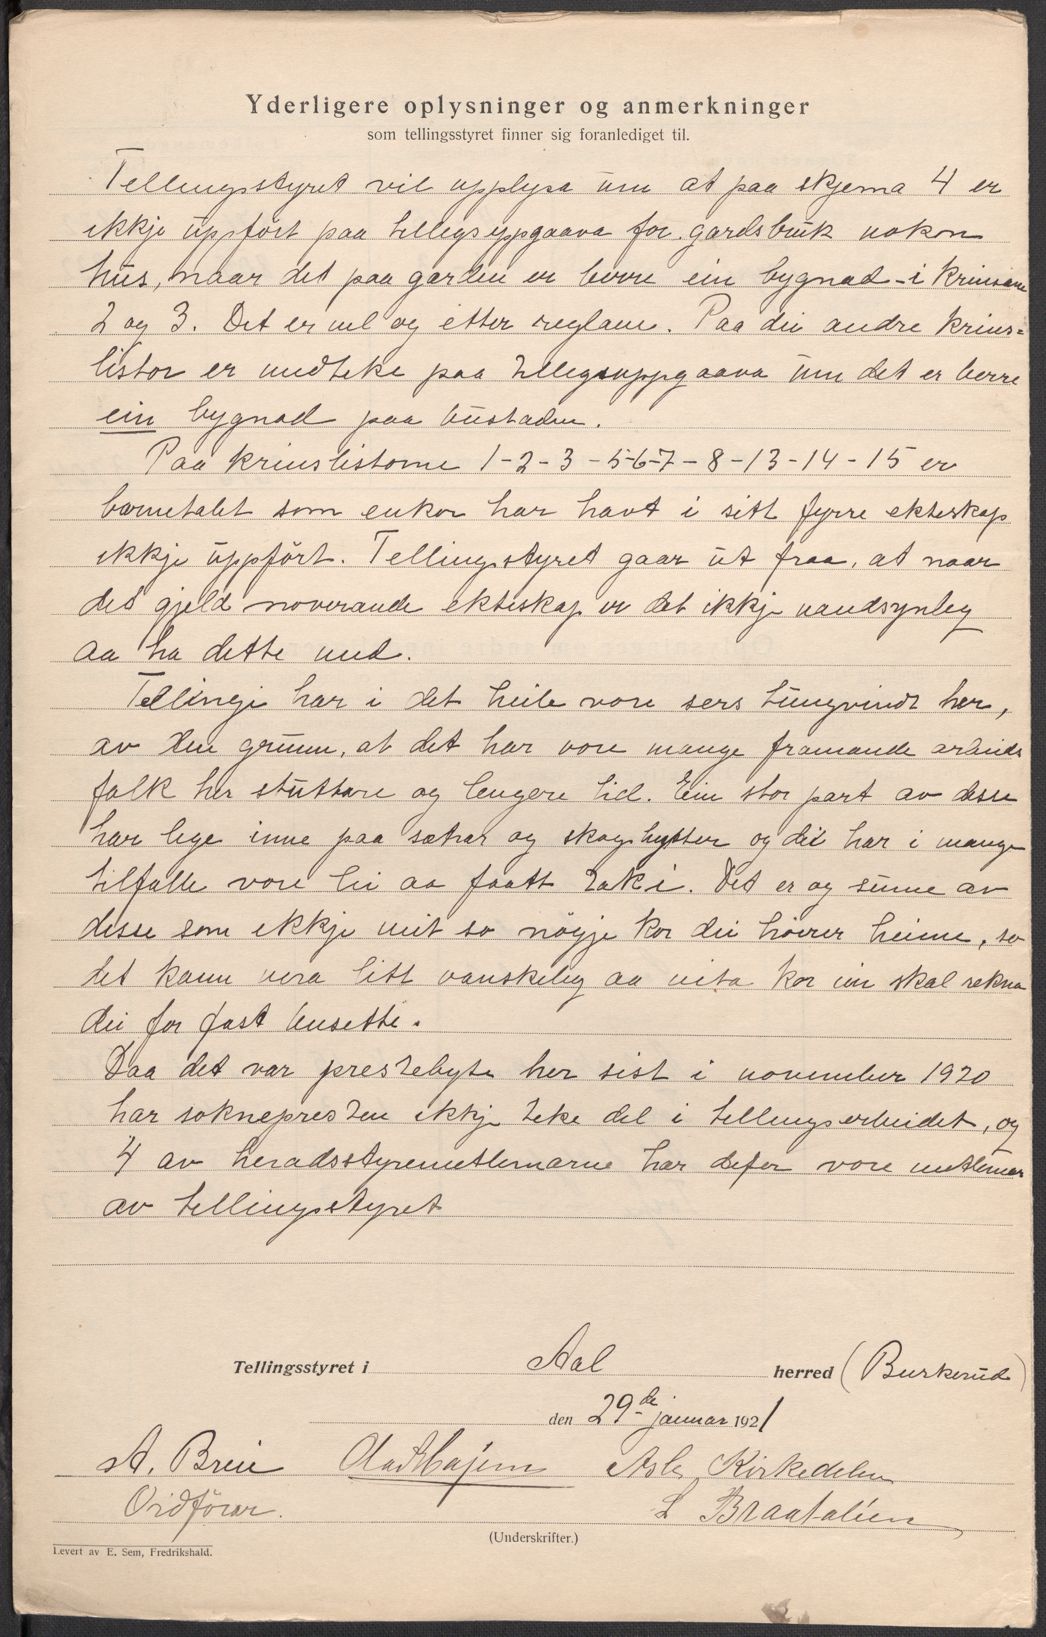 Yderligere oplysninger og anmerkninger
som tellingsstyret finner sig foranlediget til.
Tellingsstyret vil upplysa um at paa skjema 4 er
ikkje uppført paa tillegsuppgaava for gardsbruk nokon
hus, naar det paa garden er berre ein bygnad i krinsane
2 og 3. Det er vel og etter reglane. Paa dei andre krins-
listor er medteke paa tillegsuppgaava um det er berre
ein bygnad paa bustaden.
Paa krinslistorne 1-2-3-5-6-7-8-13-14-15 er
barnetalet som enkor har havt i sitt fyrre ekteskap
ikkje uppført. Tellingsstyret gaar ut fraa, at naar
det gjeld noverande ekteskap er det ikkje naudsynleg
aa ha dette med.
Tellingi har i det heile vore sers tungvindt her,
av den grunn, at det har vore mange framande arbeids
folk her stuttare og lengere tid. Ein stor part av desse
har lege inne paa sætrar og skogshytter og dei har i mange
tilfalle vore lei aa faatt tak i. Det er og sume av
desse som ikkje veit so nøgje kor dei høirer heime, so
det kann vera litt vanskeleg aa vita kor ein skal rekna
dei for fast busette.
Daa det var prestebyte her sist i november 1920
har sokneprestен ikkje teke del i tellingsarbeidet, og
4 av heradsstyremedlemarne har defor vore medlemer
av tellingsstyret
Tellingsstyret i Aal herred (Buskerud)
den 29de januar 1921
A. Breie
Asle Kirkedelen
Ordførar.
L Braatalien
(Underskrifter.)
Levert av E. Sem, Fredrikshald.